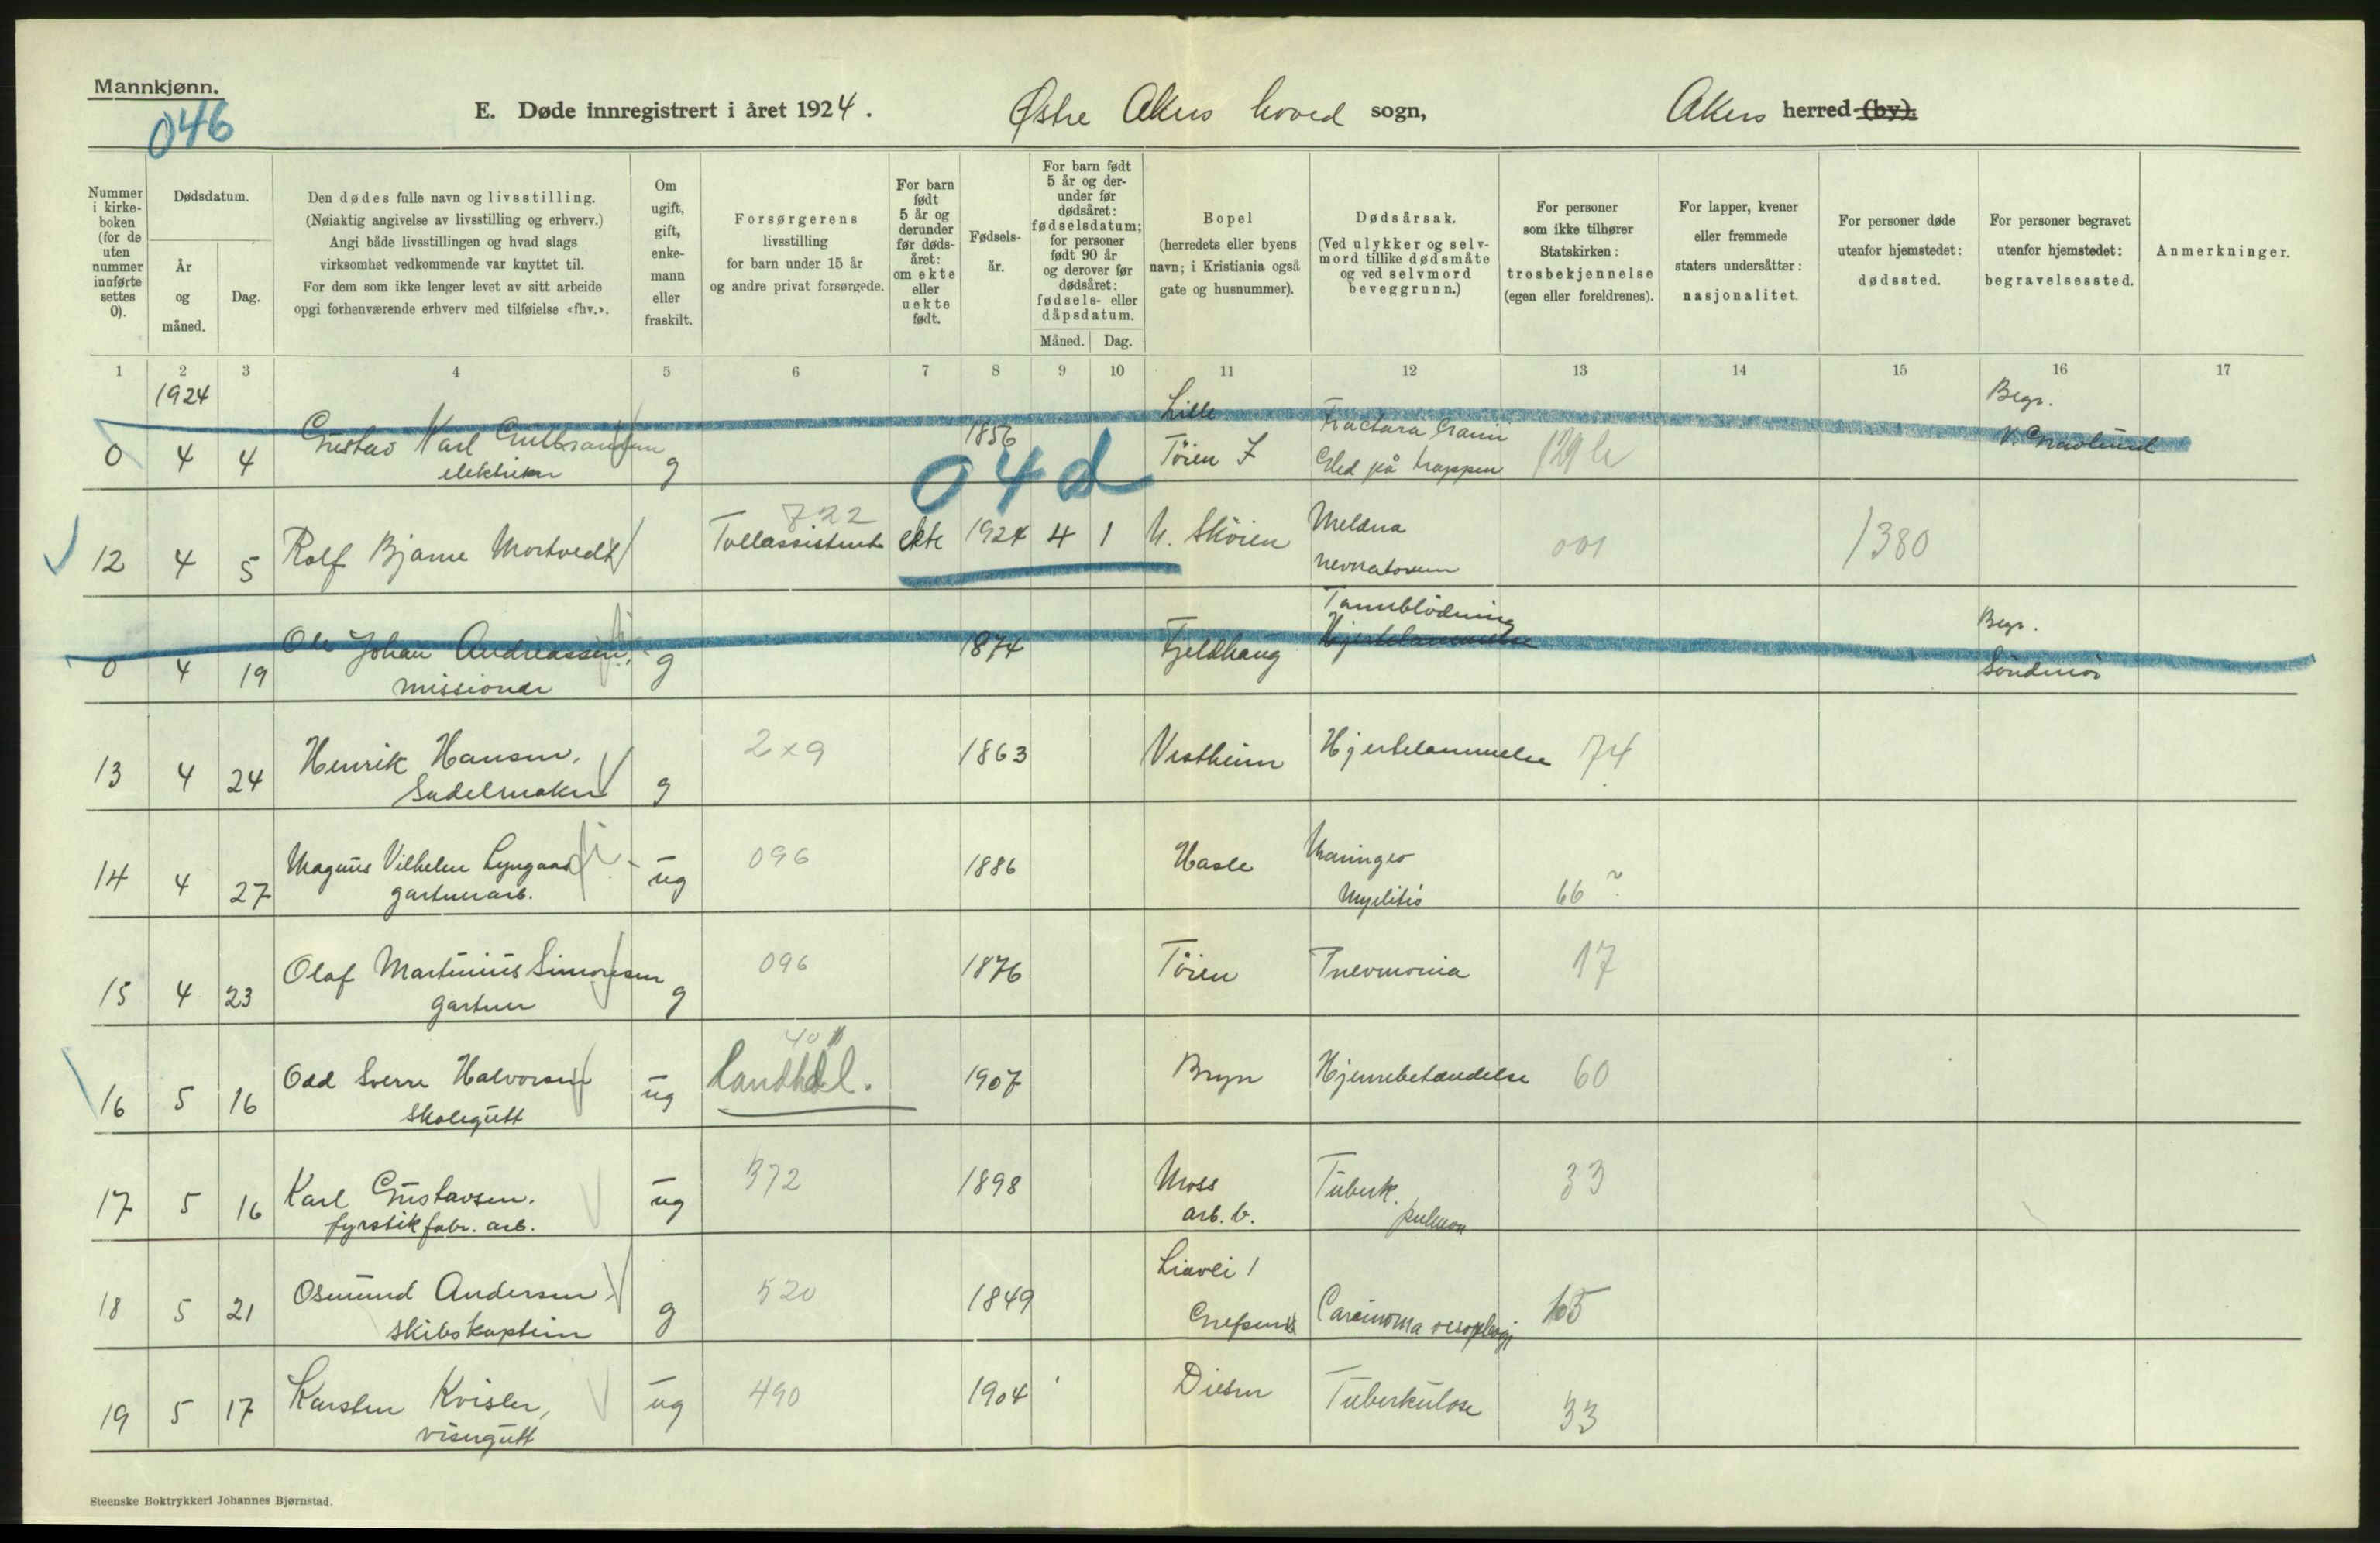 Mannkjønn.
046
E. Døde innregistrert i året 1924.
Østre Akers hoved sogn,
Akers herred (by).
Nummer i kirke-boken (for de uten nummer innførte settes 0).
Dødsdatum.
År og måned.
Dag.
Den dødes fulle navn og livsstilling.
(Nøiaktig angivelse av livsstilling og erhverv.)
Angi både livsstillingen og hvad slags
virksomhet vedkommende var knyttet til.
For dem som ikke lenger levet av sitt arbeide
opgi forhenværende erhverv med tilføielse «fhv.».
Om ugift, gift, enke-mann eller fraskilt.
Forsørgerens
livsstilling
for barn under 15 år
og andre privat forsørgede.
For barn født 5 år og derunder før døds-året: om ekte eller uekte født.
Fødsels-år.
For barn født 5 år og der-under før dødsåret: fødselsdatum; for personer født 90 år og derover før dødsåret: fødsels- eller dåpsdatum.
Måned.
Dag.
Bopel
(herredets eller byens
navn; i Kristiania også
gate og husnummer).
Dødsårsak.
(Ved ulykker og selv-
mord tillike dødsmåte
og ved selvmord
beveggrunn.)
For personer
som ikke tilhører
Statskirken:
trosbekjennelse
(egen eller foreldrenes).
For lapper, kvener
eller fremmede
staters undersåtter:
nasjonalitet.
For personer døde
utenfor hjemstedet:
dødssted.
For personer begravet
utenfor hjemstedet:
begravelsessted.
Anmerkninger.
1 2 3 4 5 6 7 8 9 10 11 12 13 14 15 16 17
1924
0 4 4 Gustav Karl Gulbrandsen g 1856 Lille Fractura Cranii Begr.
elektriker Tøien 7 Gled på trappen 129 b V. Gravlund
04d
12 4 5 Rolf Bjarne Mortvedt 722 Tollassistent ekte 1924 4 1 N. Skøien Melæna 001 1380
neonatorum
0 4 19 Ole Johan Andreassen, g 1874 Fjeldhaug Tarmblødning Begr.
missionær Hjertelammelse Søndmør
13 4 24 Henrik Hansen, g 2×9 1863 Vestheim Hjertelammelse 74
Sadelmaker
14 4 27 Magnus Vilhelm Lyngaas ug 096 1886 Hasle Meningo 66 ?
gartnerarb. Myelitis
15 4 23 Olaf Martinius Simonsen g 096 1876 Tøien Pnevmonia 17
gartner
16 5 16 Odd Sverre Halvorsen ug 40 Landhdl. 1907 Bryn Hjernebetændelse 60
skolegutt
17 5 16 Karl Gustavsen. ug 372 1898 Moss Tuberk. 33
fyrstikfabr. arb. arb. b. pulmon
18 5 21 Osmund Andersen g 520 1849 Liavei 1 Carcinoma oesophagi
skibskaptein Grefsen
19 5 17 Karsten Kvisler, ug 490 1904 Disen Tuberkulose 33
visergutt
Steenske Boktrykkeri Johannes Bjørnstad.